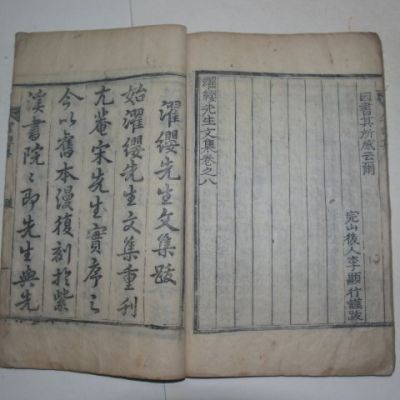 因書其所感云爾
完山後人李顯行謹跋
濯纓先生文集卷之八
濯纓先生文集跋
始濯纓先生文集重刊
尤菴宋先生實序之
今以舊本漫復刻於紫
溪書院〻即先生與先